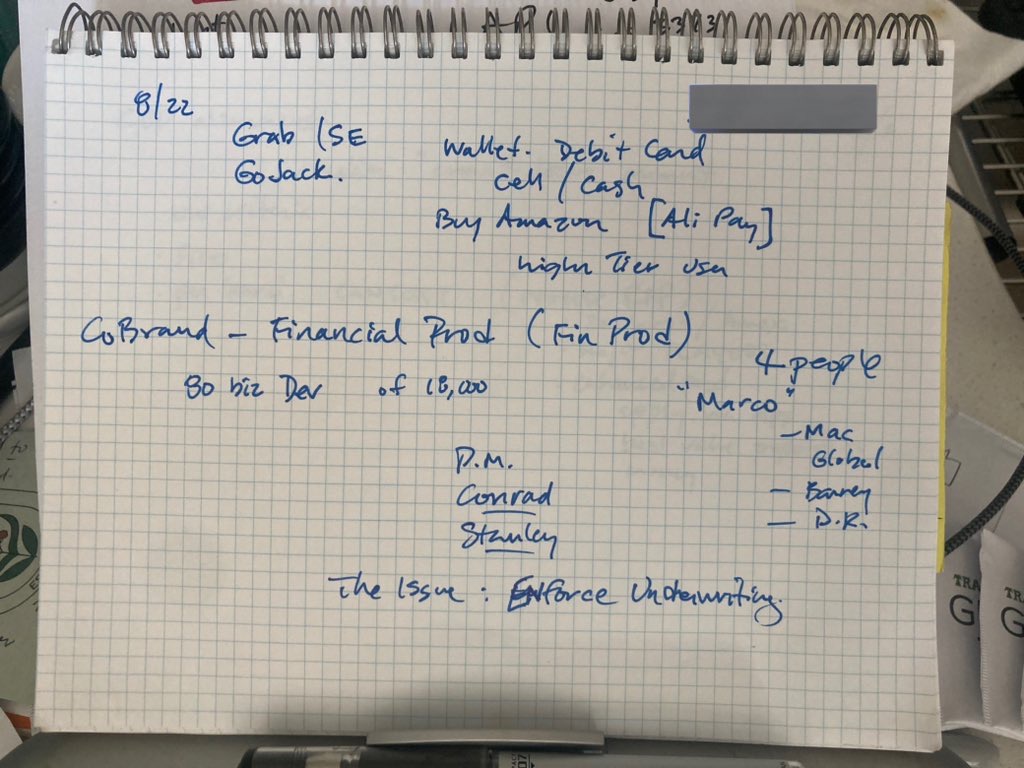 8/22
Grab (SE
GoJack.
Wallet. Debit Card
Cell / Cash
Buy Amazon [Ali Pay]
High Tier User
CoBrand - Financial Prod (Fin Prod)
80 biz Dev of 18,000
4 people
"Marco"
- Mac
Global
- Barney
- D.R.
P.M.
Conrad
Stanley
The Issue: Enforce Underwriting.
TRA
G
TR
G